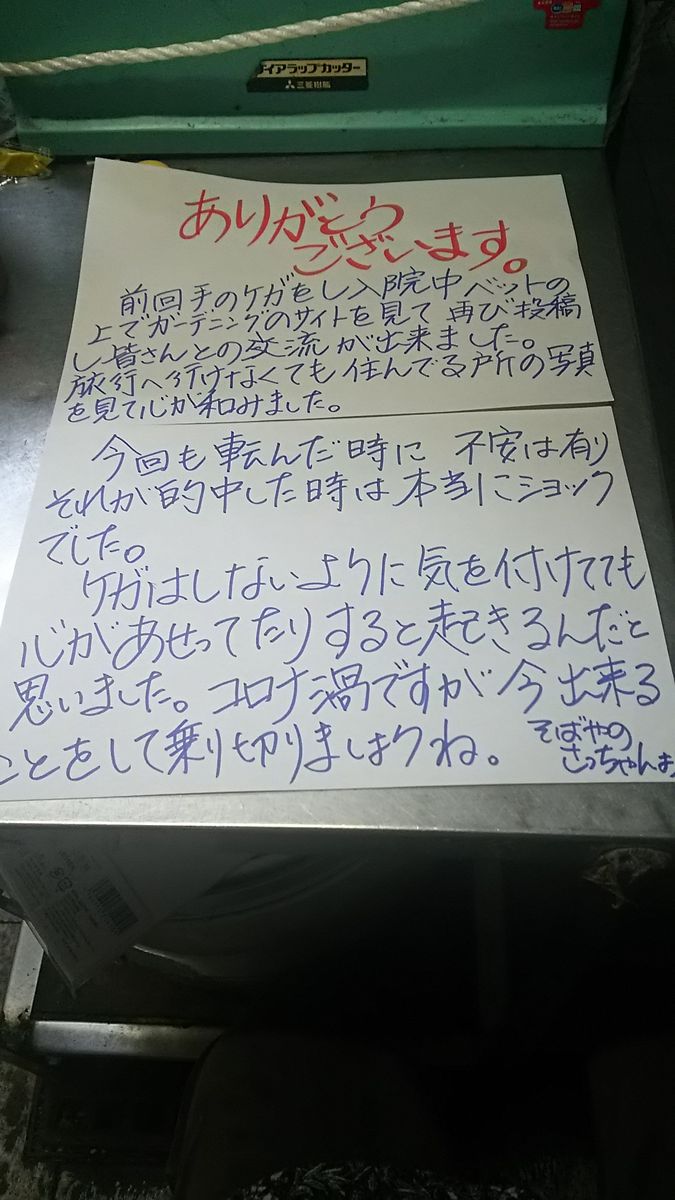 ダイアラップカッター
三菱樹脂
ありがとう
ございます。
前回手のケガをし入院中ベットの
上でガーデニングのサイトを見て 再び投稿
し皆さんとの交流が出来ました。
旅行へ行けなくても住んでる戸所の写真
を見て心が和みました。
今回も転んだ時に 不安は有り
それが的中した時は本当にショック
でした。
ケガはしないように気を付けてても
心があせってたりすると起きるんだと
思いました。コロナ渦ですが今出来る
ことをして乗り切りましょうね。
そばやの
さっちゃん